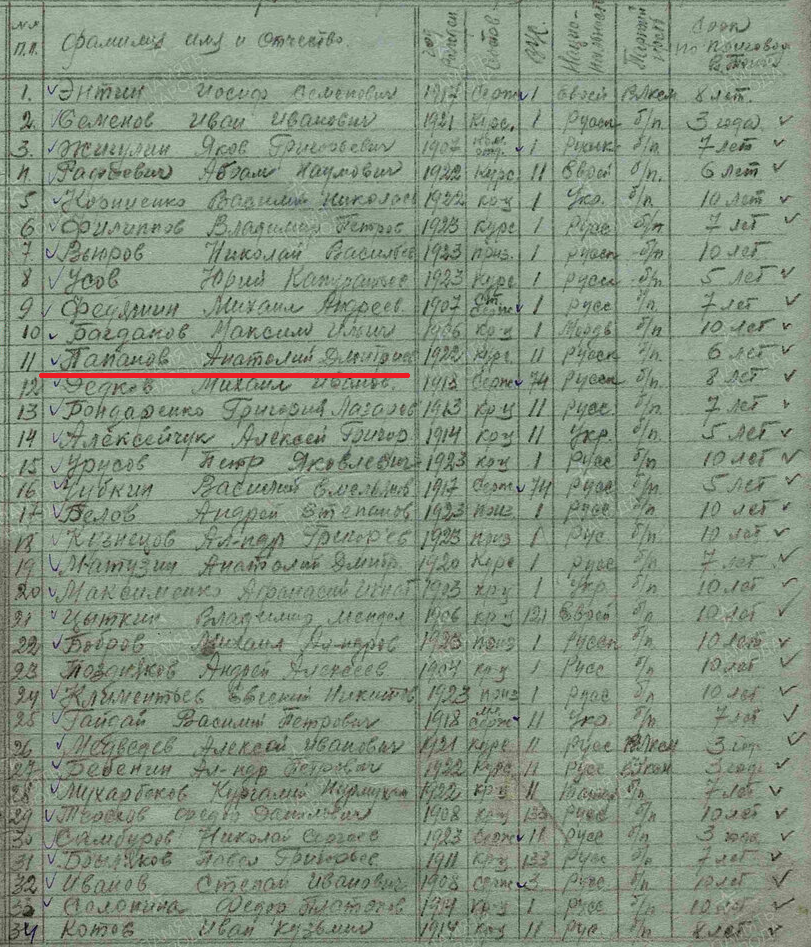 №№ п.п. Фамилия имя и отчество. год рожден Состав. ВУС. Нацио-нальность Партий Срок по приговору В.Триб.
1. Энтин Иосиф Семенович 1917 Серж 1 Еврей ВЛКСМ 8 лет.
2. Семенов Иван Иванович 1921 курс. 1 Русск б/п. 3 года
3. Жигулин Яков Григорьевич 1907 1 Русск б/п 7 лет
4. Абрам Наумович 1922 курс 11 Еврей б/п. 6 лет
5 Корниенко Василий Николаев 1922 кр-ц 1 Укр. б/п 10 лет
6 Филиппов Владимир Петров 1923 курс 1 Русск б/п 7 лет
7 Николай Василье 1923 приз. 1 русск б/п 10 лет
8 Усов Юрий 1923 курс 1 Русск б/п 5 лет
9 Михаил Андреев. 1907 ст серж 1 русс б/п 7 лет
10 Богданов Максим Ильич 1906 кр-ц 1 Мордв б/п 10 лет
11 Папанов Анатолий Дмитрие 1922 курс 11 Русс б/п 6 лет
12 Федков Михаил Иванов. 1918 Серж 74 Русск б/п 8 лет
13 Бондаренко Григорий Лазарев 1913 кр-ц 11 Русс. б/п 7 лет
14 Алексейчук Алексей Григор. 1914 кр-ц 11 Укр. б/п. 5 лет
15 Урусов Петр Яковлевич 1923 кр-ц 1 Русс б/п 10 лет
16 Губкин Василий Емельянов 1917 Серж 74 Русс б/п 5 лет
17 Белов Андрей Степанов 1923 приз 1 Русс б/п 10 лет
18 Кузнецов Ал-ндр Григорьев 1923 приз 1 Рус. б/п 10 лет
19 Матузин Анатолий Дмитр. 1920 Курс 1 Русс. б/п 7 лет
20 Максименко Афанасий Игнат 1903 кр-ц 1 Укр. б/п 10 лет
21 Цыткин Владимир Мендел 1906 кр-ц 121 Еврей б/п 10 лет
22 Бобров Михаил Ал-ндров 1923 приз 1 Русск б/п 10 лет
23 Поздняков Андрей Алексеев 1904 кр-ц 1 Русс б/п 10 лет
24 Климентьев Евгений Никитов 1923 приз 1 русс б/п 10 лет
25 Гайдай Василий Петрович 1918 мл. серж 11 Укр. б/п 7 лет
26 Медведев Алексей Иванович 1921 курс 11 Русс ВЛКСМ 3 год
27 Бебенин Ал-ндр Петрович 1922 Курс. 11 Русс ВЛКСМ 3 год
28 Мухарбеков 1922 кр-ц 11 б/п 7 лет
29 Федор Данилович 1908 кр-ц 133 Русс б/п 10 лет
30 Самбуров Николай Сергеев 1923 Серж 11 русс б/п 3 года
31 Павел Григорьев 1911 кр-ц 133 Русс б/п 7 лет
32 Иванов Степан Иванович 1908 серж 3 Русс б/п 10 лет
33 Солонина Федор Платонов 1914 кр-ц 1 Русс б/п 10 лет
34 Котов Иван Кузьмич 1914 кр-ц 11 Рус б/п лет